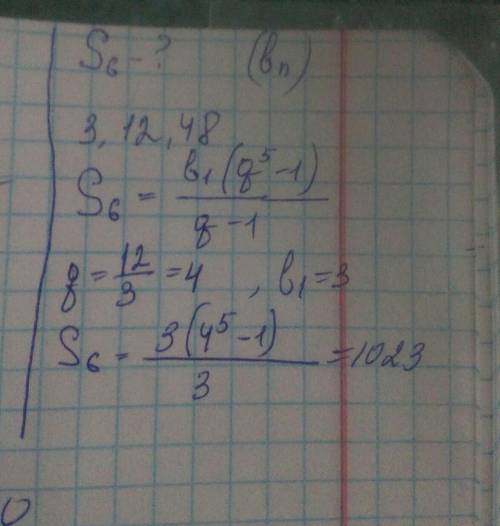 S₆ - ? (bₙ)
3, 12, 48
S₆ = b₁(q⁵-1) / q-1
q = 12/3 = 4 , b₁ = 3
S₆ = 3(4⁵-1) / 3 = 1023